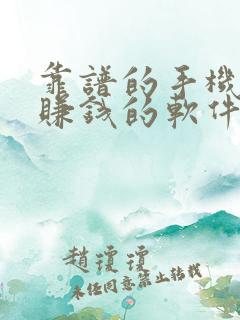 靠譜的手機
賺錢的軟件
趙瓊瓊
未任同意禁止转載